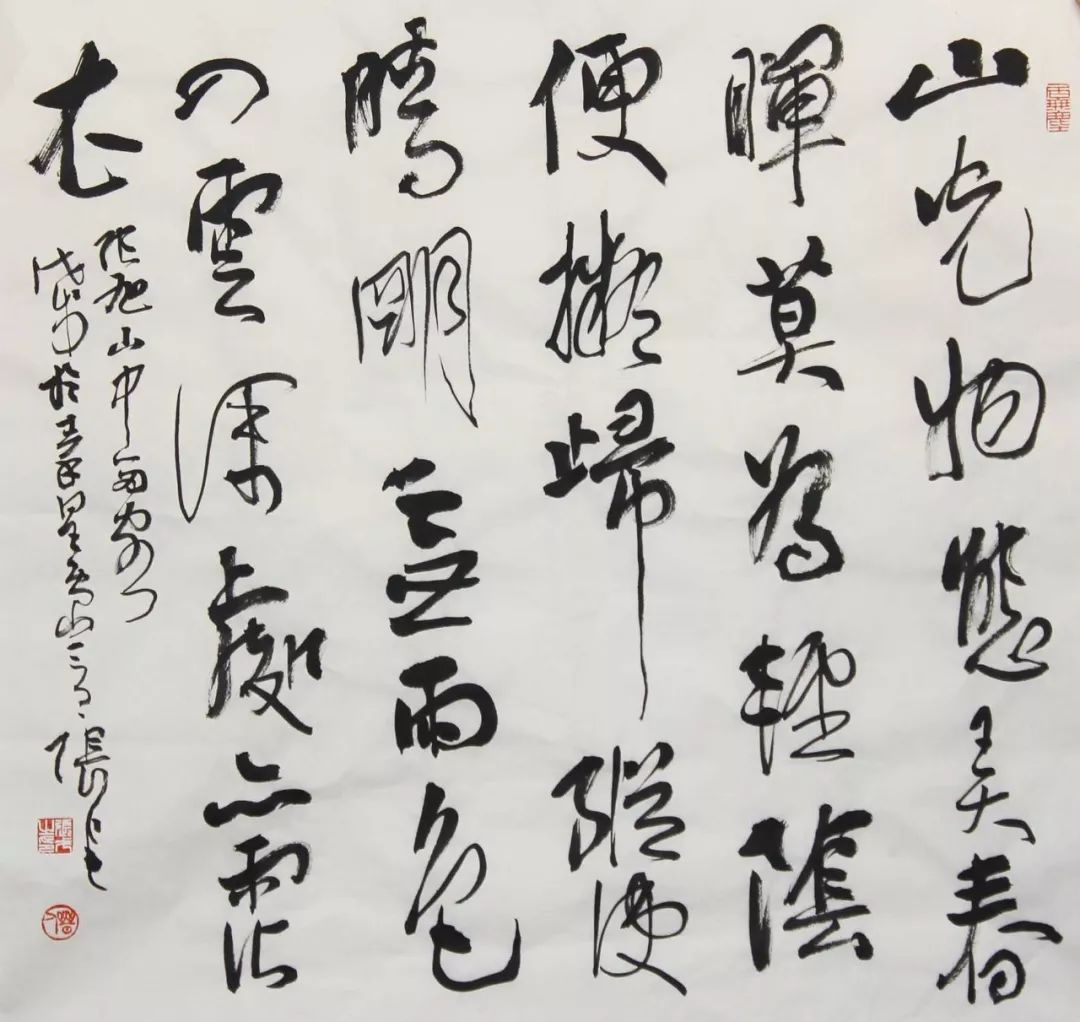 山光物態弄春
暉莫為輕陰
便擬歸縱使
晴明無雨色
入雲深處亦霑
衣
張旭山中留客
於 山 張